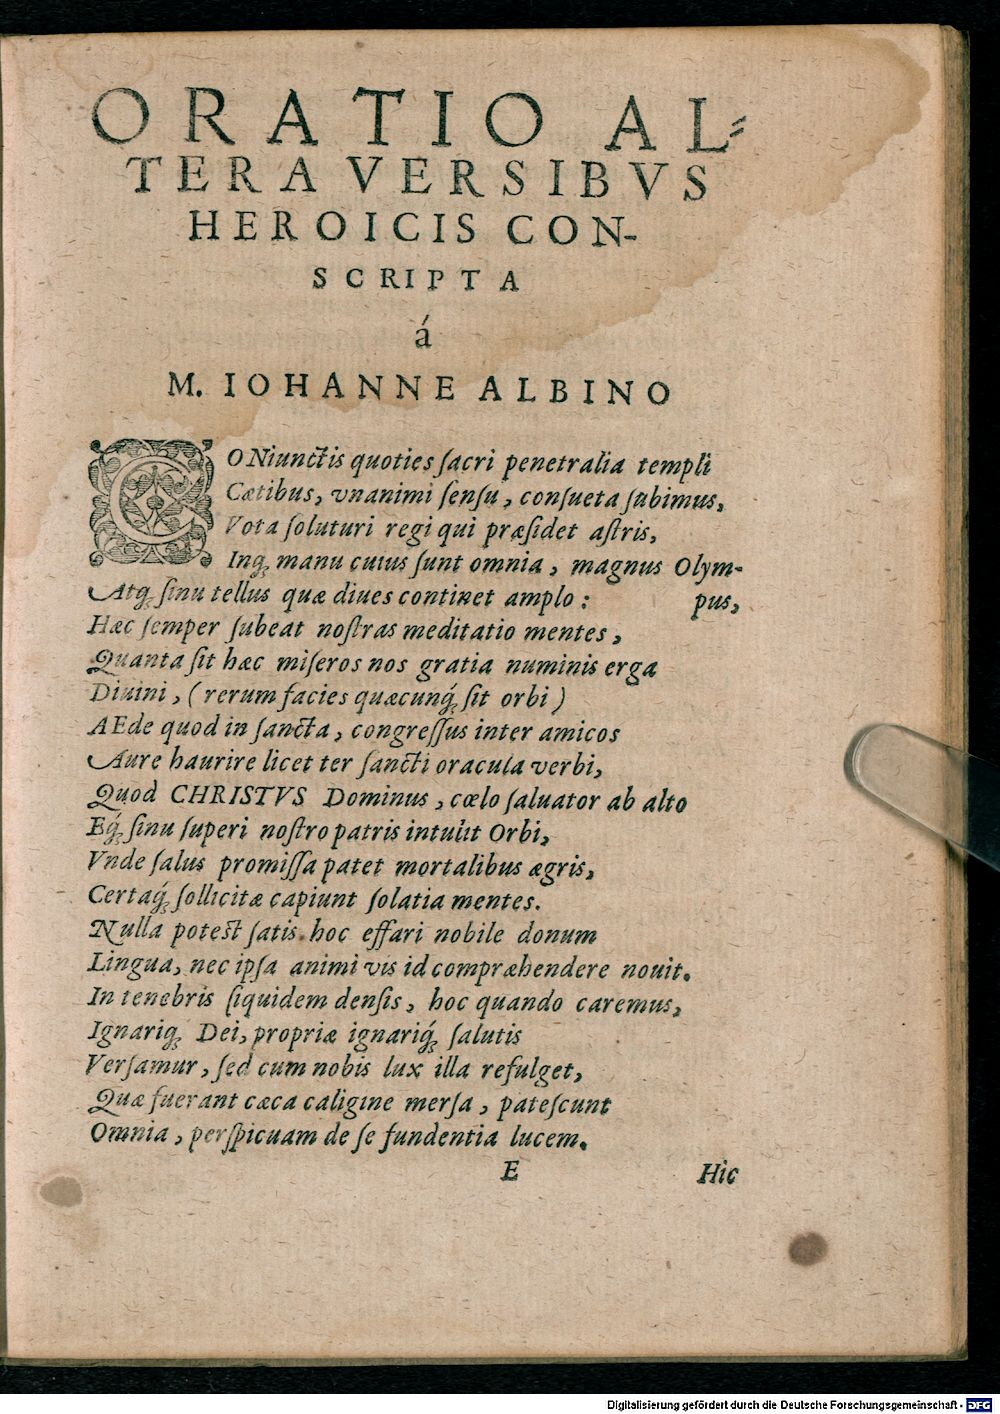 ORATIO AL-
TERA VERSIBVS
HEROICIS CON-
SCRIPTA
á
M. IOHANNE ALBINO
CONiunctis quoties ſacri penetralia templi
Cætibus, vnanimi ſenſu, conſueta ſubimus,
Vota ſoluturi regi qui præſidet aſtris,
Inq́ manu cuius ſunt omnia, magnus Olym-
Atq́ ſinu tellus quæ diues continet amplo: pus,
Hæc ſemper ſubeat noſtras meditatio mentes,
Quanta ſit hæc miſeros nos gratia numinis erga
Diuini, (rerum facies quæcunq́ ſit orbi)
AEde quod in ſancta, congreſſus inter amicos
Aure haurire licet ter ſancti oracula verbi,
Quod CHRISTVS Dominus, cœlo ſaluator ab alto
Eq́ ſinu ſuperi noſtro patris intulit Orbi,
Vnde ſalus promiſſa patet mortalibus ægris,
Certaq́ ſollicitæ capiunt ſolatia mentes.
Nulla poteſt ſatis hoc effari nobile donum
Lingua, nec ipſa animi vis id compræhendere nouit.
In tenebris ſiquidem denſis, hoc quando caremus,
Ignariq́ Dei, propriæ ignariq́ ſalutis
Verſamur, ſed cum nobis lux illa refulget,
Quæ fuerant cæca caligine merſa, pateſcunt
Omnia, perſpicuam de ſe fundentia lucem.
E Hic
Digitalisierung gefördert durch die Deutsche Forschungsgemeinschaft - DFG